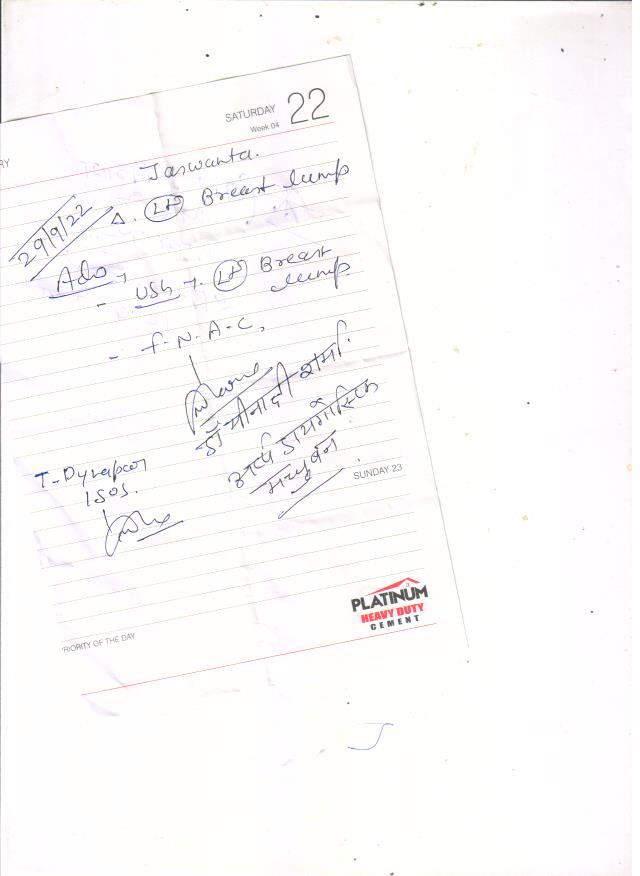 SATURDAY 22
Week 04
RY
Jaswanta.
29/9/22
Δ. LT Breast lump
Adv →
- USG → LT Breast
lump
- F.N.A.C,
डॉ मीनाक्षी शर्मा
आर्य डायग्नोस्टिक
मधुबन
SUNDAY 23
PLATINUM
HEAVY DUTY
CEMENT
RIORITY OF THE DAY
J